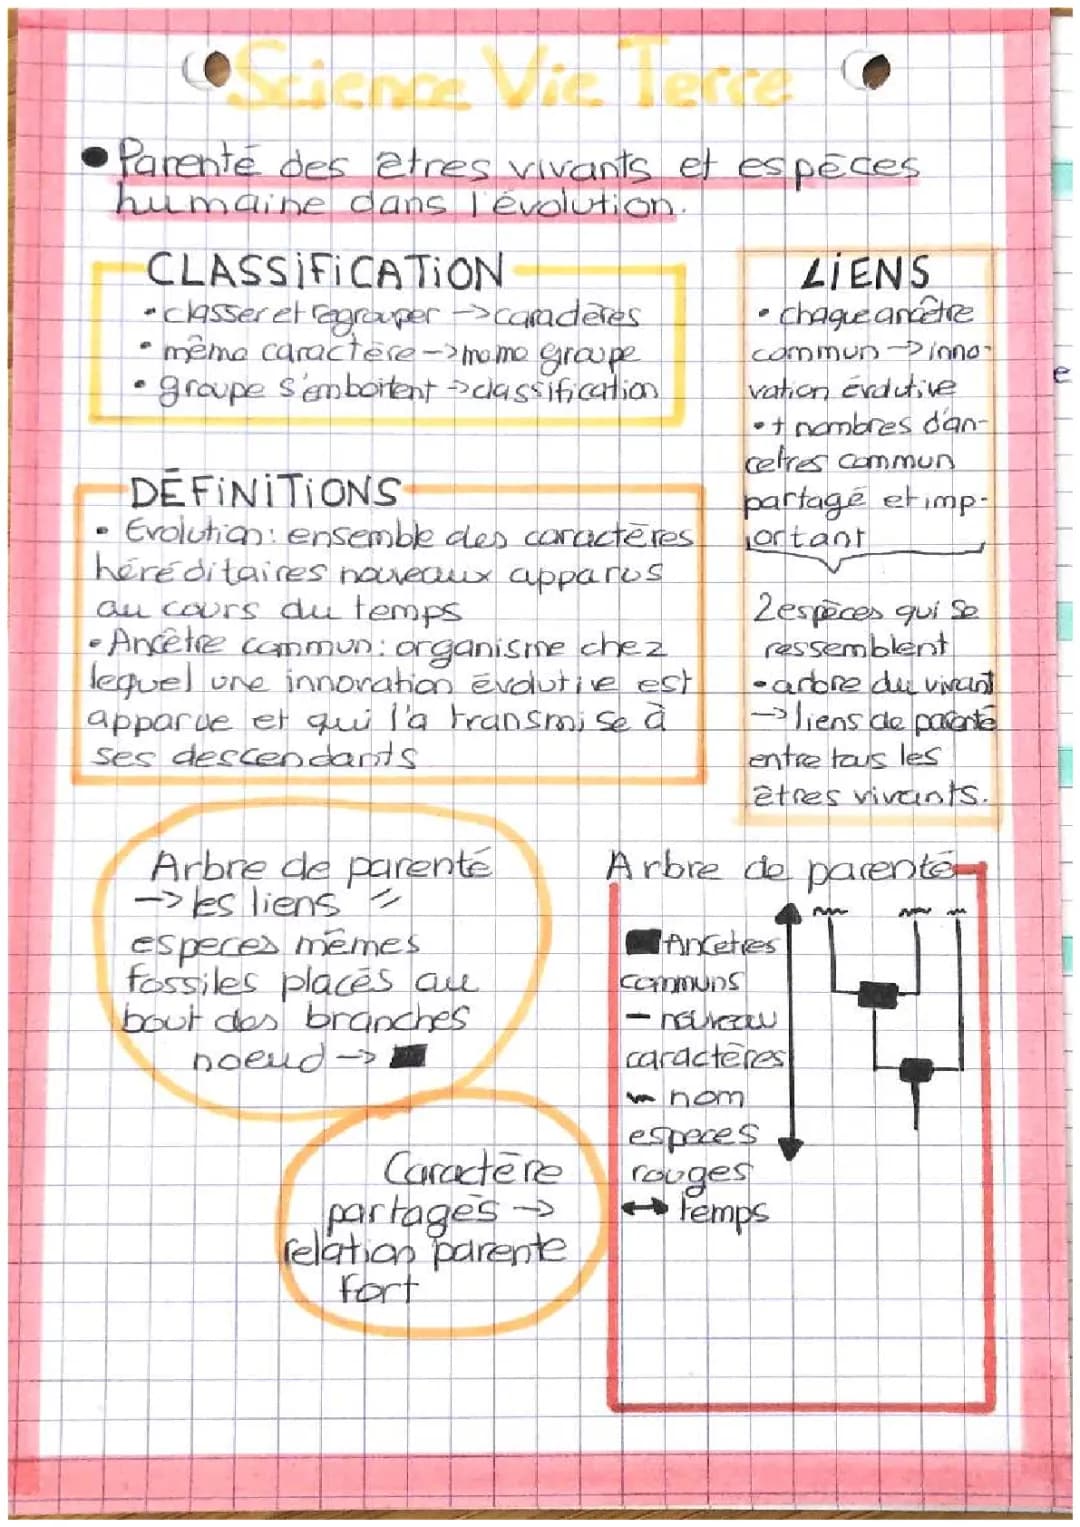 Science Vie Terre
• Parenté des êtres vivants et espèces
humaine dans l'évolution.
CLASSIFICATION
• classer et regrouper → caractères
• même caractère → meme groupe
• groupe s'emboitent → classification
DÉFINITIONS
• Evolution : ensemble des caractères
héréditaires nouveaux apparus
au cours du temps
• Ancêtre commun : organisme chez
lequel une innovation évolutive est
apparue et qui l'a transmise à
ses descendants
LIENS
• chaque ancêtre
commun → inno-
vation évolutive
• + nombres d'an-
cetres commun
partagé et imp-
ortant
2 espèces qui se
ressemblent
• arbre du vivant
→ liens de parenté
entre tous les
êtres vivants.
Arbre de parenté
→ les liens
especes mêmes
fossiles placés au
bout des branches
noeud → ■
Caractère
partagés →
relation parente
fort
Arbre de parenté
■ Ancetres
communs
– nouveau
caractères
nom
especes
rouges
↔ temps
e